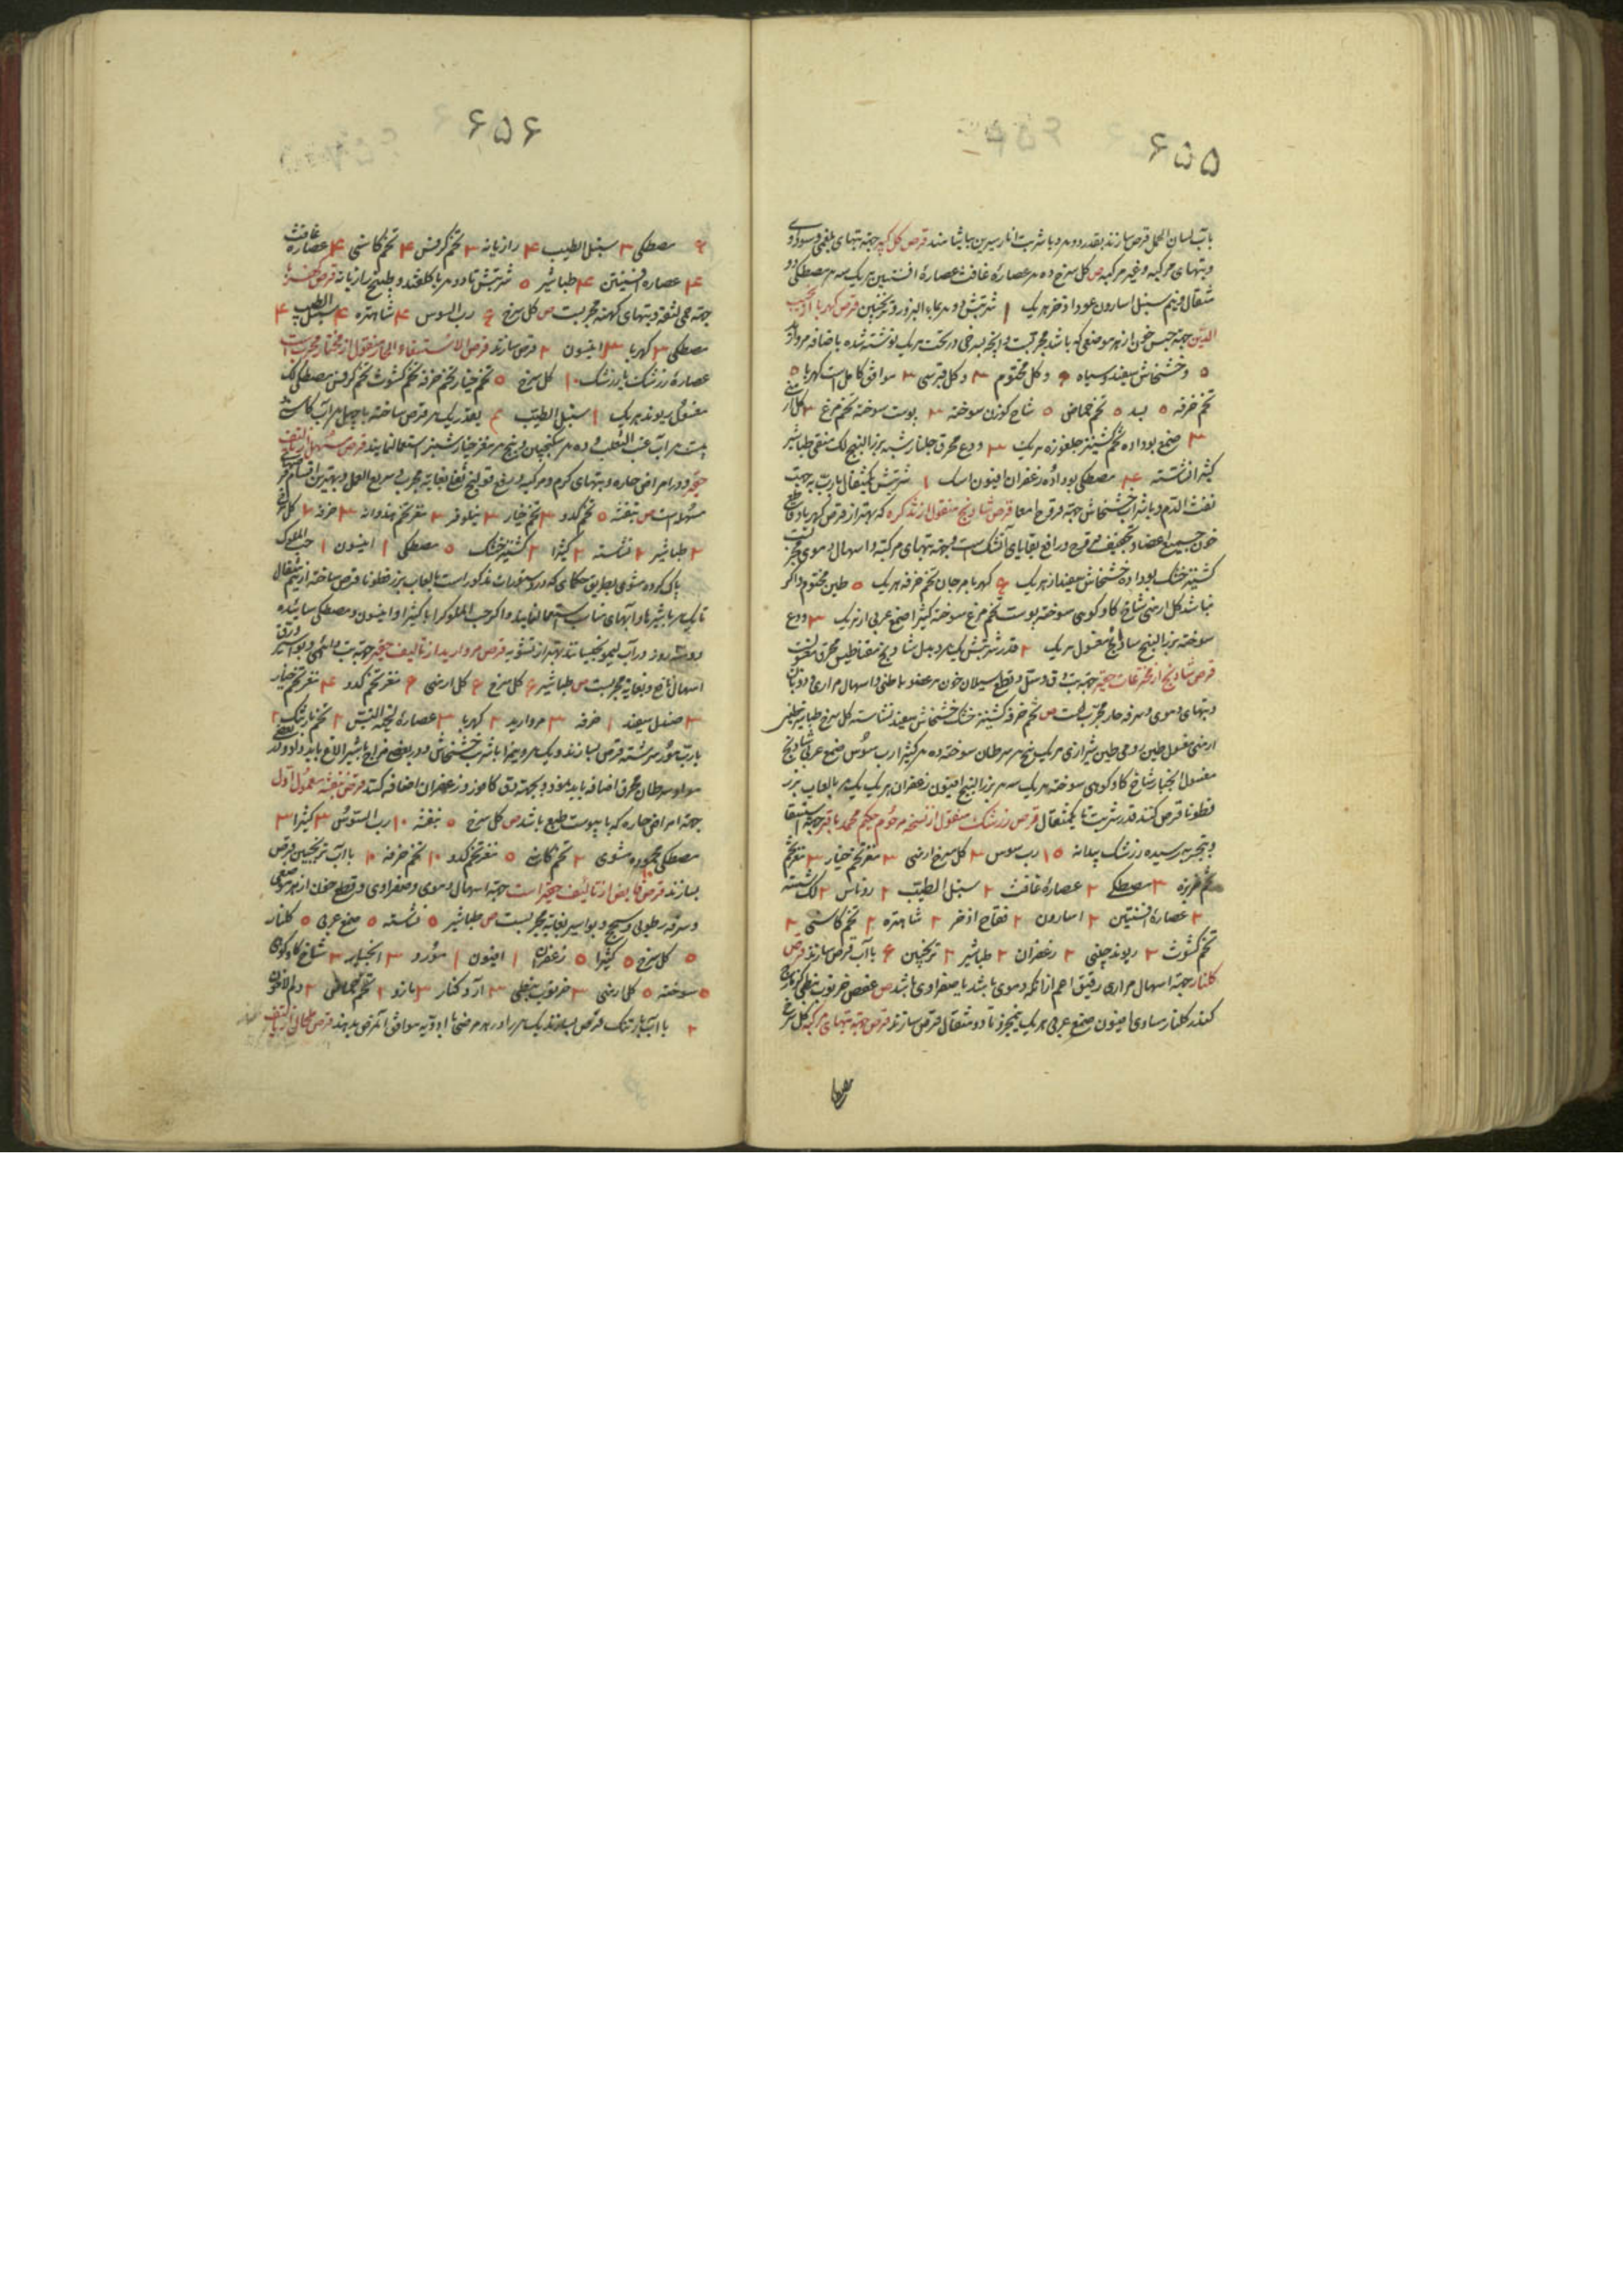 ۶۵۵
باب لسان الحمل قرص سازند بقدر دو درم با شربت انار شیرین بیاشامند قرص کل کبیر جهة تبهای بلغمی و سوداوی
و تبهای مرکبه و غیر مرکبه ص کل سرخ ده م عصارهٔ غافث عصارهٔ افسنتین هر یک سه م مصطکی دو
مثقال و نیم سنبل اسارون عود اذخر هر یک ۱ شربتش دو م بماء البزور و ترنجبین قرص کهربا از نجیب
الدین جهة حبس خون از هر موضعی که باشد مجربست و آنچه بسرخی در تحت هر یک نوشته شده باضافه مروارید
۵ و خشخاش سفید و سیاه ۶ و کل مختوم ۳ و کل قبرسی ۳ موافق کامل است کهربا ۵
تخم خرفه ۵ بسد ۵ تخم حماض ۵ شاخ کوزن سوخته ۳ پوست سوخته تخم مرغ ۳ کل ارمنی
۳ صمغ بو داده تخم کشنیز جلغوزه هر یک ۳ ودع محرق جلنار شبه بزر البنج لک منقی طباشیر
کثیرا نشاسته ۴ مصطکی بو داده زعفران افیون اسک ۱ شربتش یکمثقال با رب به جهت
نفث الدم و با شراب خشخاش جهة قروح امعا قرص شادنج منقول از تذکره که بهتر از قرص کهربا و قاطع
خون جمیع اعضا و تجفیف قروح و رافع بقایای آتشک است و جهة تبهای مرکبه و اسهال دموی مجرب
کشنیز خشک بو داده خشخاش سفید از هر یک ۶ کهربا مرجان تخم خرفه هر یک ۵ طین مختوم و اکر
نباشد کل ارمنی شاخ کاو کوهی سوخته پوست تخم مرغ سوخته کثیرا صمغ عربی از هر یک ۳ ودع
سوخته بزر البنج شادنج مغسول هر یک ۲ قدر شربتش یک م و بدل شادنج مقناطیس محرق مغسول است
قرص شادنج از مخترعات حقیر جهة تب دق و سل و قطع سیلان خون هر عضو باطنی و اسهال مراری و ذوبان
و تبهای دموی و سرفه حار مجربست ص تخم خرفه کشنیز خشک خشخاش سفید نشاسته کل سرخ طباشیر طین
ارمنی مغسول طین رومی طین شیرازی هر یک پنج م سرطان سوخته ده م کثیرا رب سوس صمغ عربی شادنج
مغسول انجبار شاخ کاو کوهی سوخته هر یک سه م بزر البنج افیون زعفران هر یک یک م بالعاب بزر
قطونا قرص کنند قدر شربت تا یکمثقال قرص زرشک منقول از نسخه مرحوم حکیم محمد باقر جهة استسقا
و بتجربه رسیده زرشک بیدانه ۱۵ رب سوس ۳ کل سرخ ارمنی ۳ مغز تخم خیار ۳ مغز تخم
تخم خربزه ۳ مصطکی ۲ عصارهٔ غافث ۲ سنبل الطیب ۲ روناس ۲ لک شسته
۲ عصارهٔ افسنتین ۲ اسارون ۲ فقاح اذخر ۲ شاهتره ۲ تخم کاسنی ۲
تخم کشوث ۲ ریوند چینی ۲ زعفران ۲ طباشیر ۲ ترنجبین ۶ با آب قرص سازند قرص
کلنار جهة اسهال مراری رقیق اعم از آنکه دموی باشد یا صفراوی باشد ص عفص خرنوب نبطی
کندر کلنار مساوی افیون صمغ عربی هر یک نیمجزو تا دو مثقال قرص سازند قرص جهة تبهای مرکبه کل سرخ
۶۵۶
۶ مصطکی ۳ سنبل الطیب ۴ رازیانه ۳ تخم کرفس ۴ تخم کاسنی ۴ عصاره غافث
۴ عصاره افسنتین ۴ طباشیر ۵ شربتش تا دو درم با کلقند و طبیخ رازیانه قرص
جهة حمی لثقه و تبهای کهنه مجربست ص کل سرخ ۶ رب السوس ۴ شاهتره ۴ سنبل الطیب ۴
مصطکی ۳ کهربا ۳ انیسون ۲ قرص سازند قرص الاستسقاء الحار منقول از مختار مجربست
عصارهٔ زرشک یا زرشک ۱۰ کل سرخ ۵ تخم خیار تخم خرفه تخم کشوث تخم کرفس مصطکی لک
مغسول ریوند هر یک ۱ سنبل الطیب بقدر یک م قرص ساخته با چهل م آب کاسنی
بیست م آب عنب الثعلب و ده م سکنجبین و پنج م مغز خیار شنبر استعمال نمایند قرص مسهل از تالیف
حقیر و در امراض حاره و تبهای کرم و مرکبه و رفع قولنج نافع بغایة مجرب و سریع العمل و بهترین اقسام قرص
مسهل است ص بنفشه ۵ تخم کدو ۳ تخم خیار ۳ نیلوفر ۳ مغز تخم هندوانه ۳ خرفه ۲ کل سرخ
۲ طباشیر ۲ نشاسته ۲ کثیرا ۲ کشنیز خشک ۵ مصطکی ۱ انیسون ۱ حب الملوک
پاک کرده مشوی بطریق حکمای که در دستورات مذکور است بالعاب بزر قطونا قرص ساخته از نیم مثقال
تا یک م با شیرها و آبهای مناسب استعمال نمایند و اکر حب الملوک را با کثیرا و انیسون و مصطکی سائیده
دو سه روز در آب لیمو بخیسانند بهتر از تشویه قرص مروارید از تالیف حقیر جهة تب دائمی و بواسیر و زرق
اسهال نافع و بغایة مجربست ص طباشیر ۶ کل سرخ ۶ کل ارمنی ۶ مغز تخم کدو ۴ مغز تخم خیار
۳ صندل سفید ۱ خرفه ۳ مروارید ۲ کهربا ۳ عصارهٔ لحیة التیس ۲ تخم بارتنک ۲
با رب مورد سرشته قرص بسازند و یک م و نیم را با شراب خشخاش و در بعضی مزاج با شیر الاغ باید داد و بعضی
مواد سرطان محرق اضافه باید نمود و بجهة دق کافور و زعفران اضافه کنند قرص بنفشه معمول اول
جهة امراض حاره که با یبوست طبع باشد ص کل سرخ ۵ بنفشه ۱۰ رب السوس ۳ کثیرا ۳
مصطکی محموده مشوی ۲ تخم کاسنی ۵ مغز تخم کدو ۱۰ تخم خرفه ۲ با آب ترنجبین قرص
بسازند قرص قابض از تالیف حقیر است جهة اسهال دموی و صفراوی و قطع خون از هر موضعی
و سرفه رطوبی و سحج و بواسیر بغایة مجربست ص طباشیر ۵ نشاسته ۵ صمغ عربی ۵ کلنار
۵ کل سرخ ۵ کثیرا ۵ زعفران ۱ افیون ۱ مورد ۳ انجبار ۳ شاخ کاو کوهی
سوخته ۵ کل ارمنی ۳ خرنوب نبطی ۳ آرد کنار ۳ مازو ۲ تخم حماض ۲ دم الاخوین
۲ با آب بارتنک قرص بسازند یک م را در هر مرضی با ادویه موافق آن مرض بدهند قرص طحال از تالیف